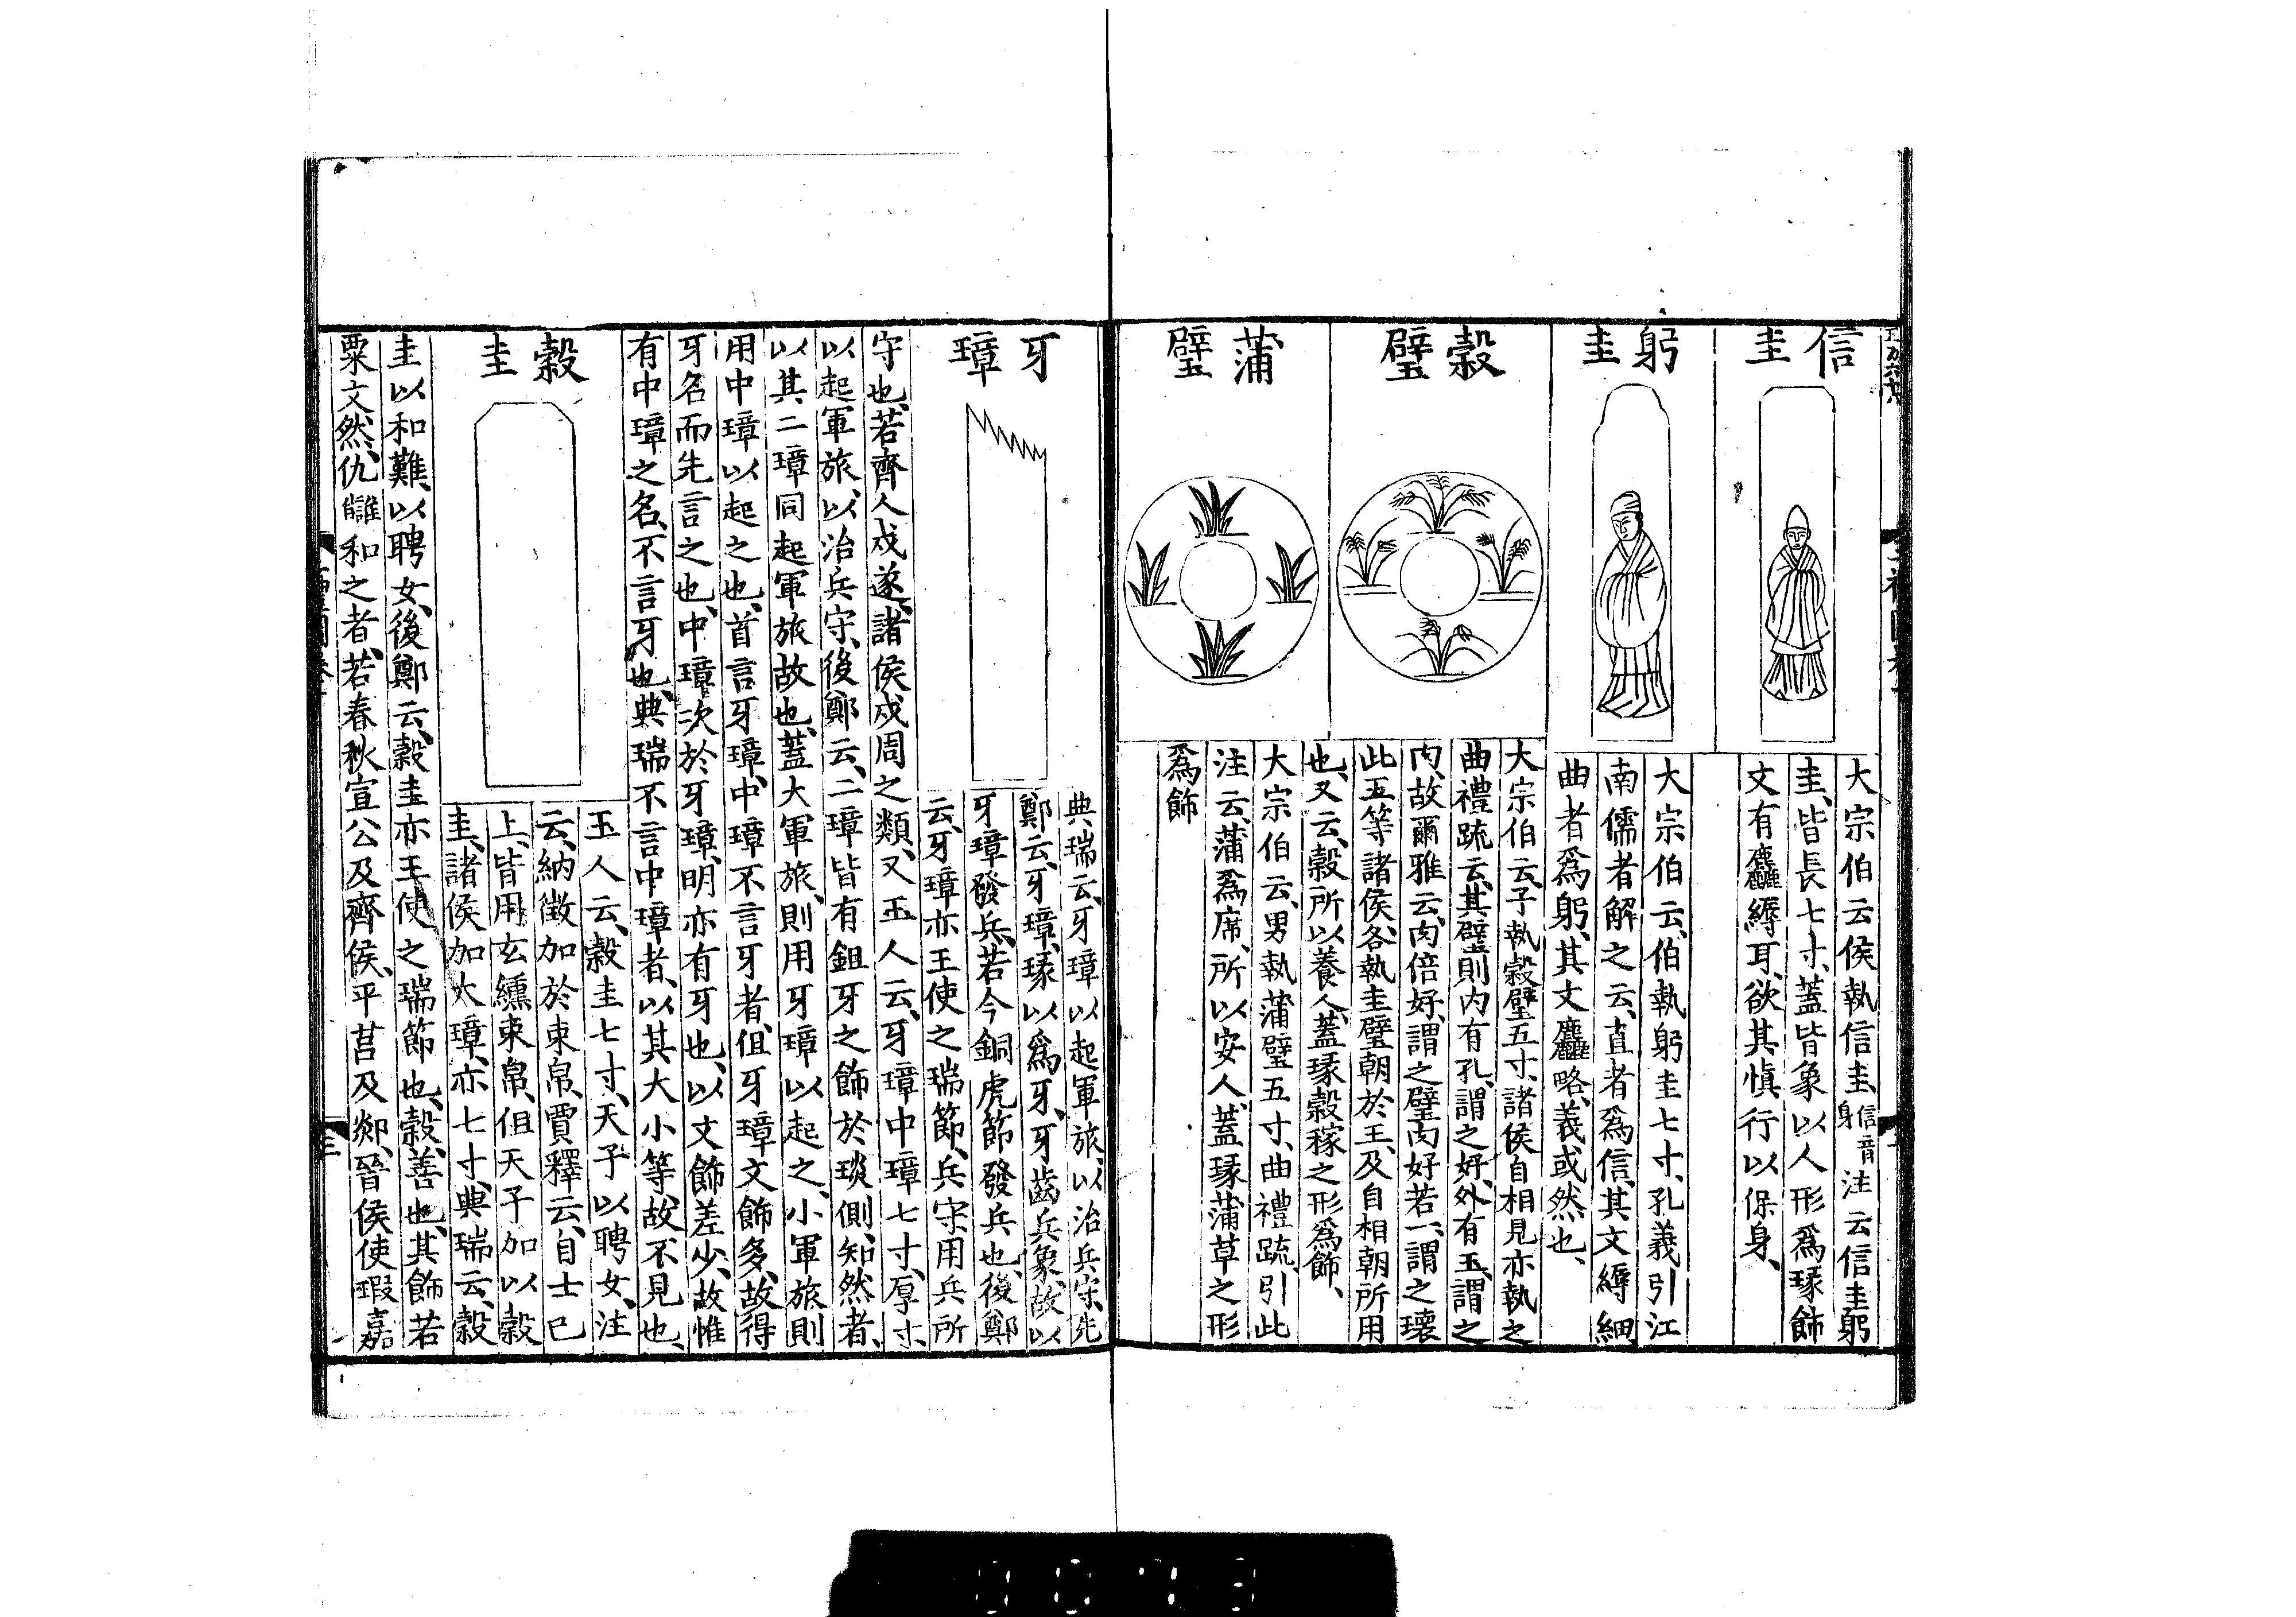 信圭
大宗伯云侯執信圭、信音身注云信圭躬
圭、皆長七寸、蓋皆象以人形爲瑑飾
文有麤縟耳、欲其愼行以保身、
躬圭
大宗伯云、伯執躬圭七寸、孔義引江
南儒者解之云、直者爲信、其文縟細、
曲者爲躬、其文麤略、義或然也、
穀璧
大宗伯云、子執穀璧五寸、諸侯自相見亦執之
曲禮疏云、其璧則內有孔、謂之好、外有玉、謂之
肉、故爾雅云、肉倍好、謂之璧、肉好若一、謂之瓌
此五等諸侯、各執圭璧朝於王、及自相朝所用
也、又云、穀所以養人、蓋瑑穀稼之形爲飾、
蒲璧
大宗伯云、男執蒲璧五寸、曲禮疏、引此
注云、蒲爲席、所以安人、蓋瑑蒲草之形
爲飾
牙璋
典瑞云、牙璋以起軍旅、以治兵守、先
鄭云、牙璋、瑑以爲牙、牙齒兵象、故以
牙璋發兵、若今銅虎節發兵也、後鄭
云、牙璋亦王使之瑞節、兵守用兵所
守也、若齊人戍遂、諸侯戍周之類、又玉人云、牙璋中璋七寸、厚寸、
以起軍旅、以治兵守、後鄭云、二璋皆有鉏牙之飾於琰側、知然者、
以其二璋同起軍旅故也、蓋大軍旅、則用牙璋以起之、小軍旅則
用中璋以起之也、首言牙璋、中璋不言牙者、伹牙璋文飾多、故得
牙名而先言之也、中璋次於牙璋、明亦有牙也、以文飾差少、故惟
有中璋之名、不言牙也、典瑞不言中璋者、以其大小等、故不見也、
穀圭
玉人云、穀圭七寸、天子以聘女、注
云、納徵加於束帛、賈釋云、自士已
上、皆用玄纁束帛、伹天子加以穀
圭、諸侯加大璋、亦七寸、典瑞云、穀
圭以和難、以聘女、後鄭云、穀圭亦王使之瑞節也、穀、善也、其飾若
粟文然、仇讎和之者、若春秋宣公及齊侯、平莒及郯、晉侯使瑕嘉